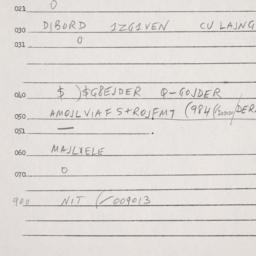 021 O
030 DIBORD 1ZG1VEN CU LAJNG
031 O
040 $ )$G8EJDER Q-GOJDER
050 AMOJLVIAF S+ROJFM7 (984/ /DER
051 — .
060 MAJLXELE
070 O
900 NIT (/009013